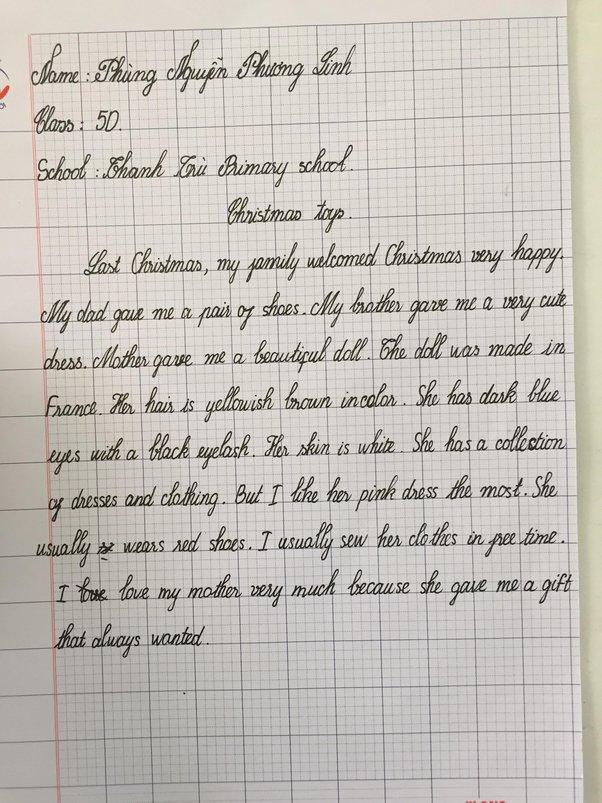 Name : Phùng Nguyễn Phương Linh
Class : 5D.
School : Thanh Trù Primary school.
Christmas toys.
Last Christmas, my family welcomed Christmas very happy.
My dad gave me a pair of shoes. My brother gave me a very cute
dress. Mother gave me a beautiful doll. The doll was made in
France. Her hair is yellowish brown incolor. She has dark blue
eyes with a black eyelash. Her skin is white. She has a collection
of dresses and clothing. But I like her pink dress the most. She
usually wears red shoes. I usually sew her clothes in free time.
I love my mother very much because she gave me a gift
that always wanted.